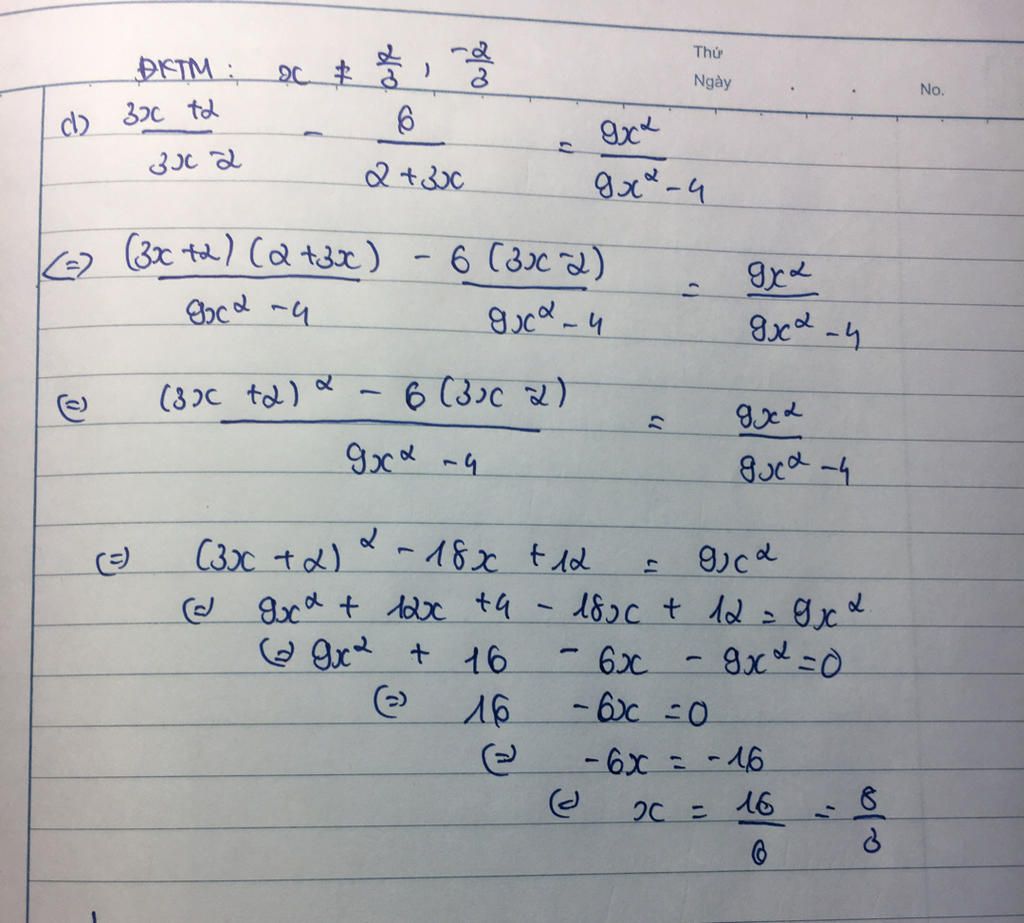 Thứ
Ngày . . No.
ĐKTM: x ≠ 2/3, -2/3
d) (3x + 2)/(3x - 2) - 6/(2 + 3x) = 9x²/(9x² - 4)
<=> (3x + 2)(2 + 3x)/(9x² - 4) - 6(3x - 2)/(9x² - 4) = 9x²/(9x² - 4)
(=) ((3x + 2)² - 6(3x - 2))/(9x² - 4) = 9x²/(9x² - 4)
(=) (3x + 2)² - 18x + 12 = 9x²
(=) 9x² + 12x + 4 - 18x + 12 = 9x²
(=) 9x² + 16 - 6x - 9x² = 0
(=) 16 - 6x = 0
(=) -6x = -16
(=) x = 16/6 = 8/3